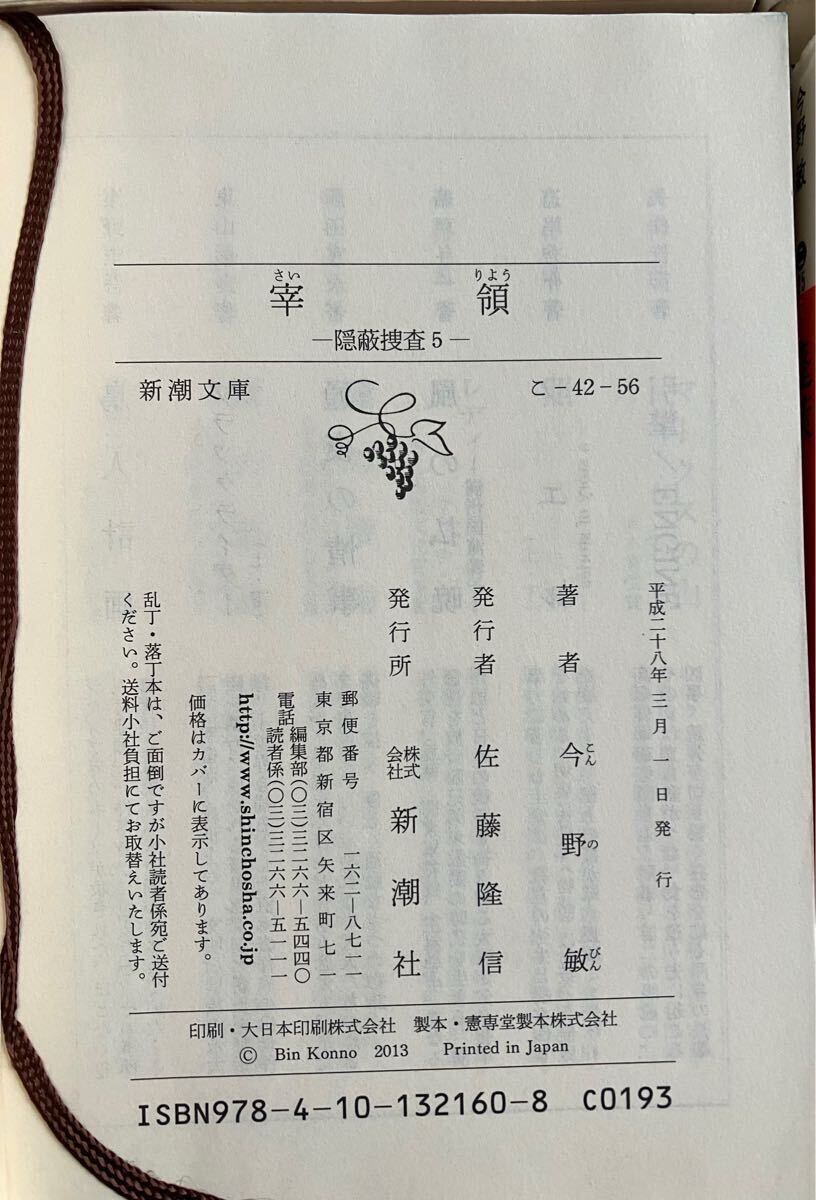 さい りよう
宰領
―隠蔽捜査5―
新潮文庫
こ-42-56
平成二十八年三月一日発行
著者 今野敏
こん の びん
発行者 佐藤隆信
発行所 株式会社 新潮社
郵便番号 一六二―八七一一
東京都新宿区矢来町七一
電話 編集部(〇三)三二六六―五四四〇
読者係(〇三)三二六六―五一一一
http://www.shinchosha.co.jp
価格はカバーに表示してあります。
乱丁・落丁本は、ご面倒ですが小社読者係宛ご送付
ください。送料小社負担にてお取替えいたします。
印刷・大日本印刷株式会社 製本・憲専堂製本株式会社
© Bin Konno 2013 Printed in Japan
ISBN978-4-10-132160-8 C0193
今野敏